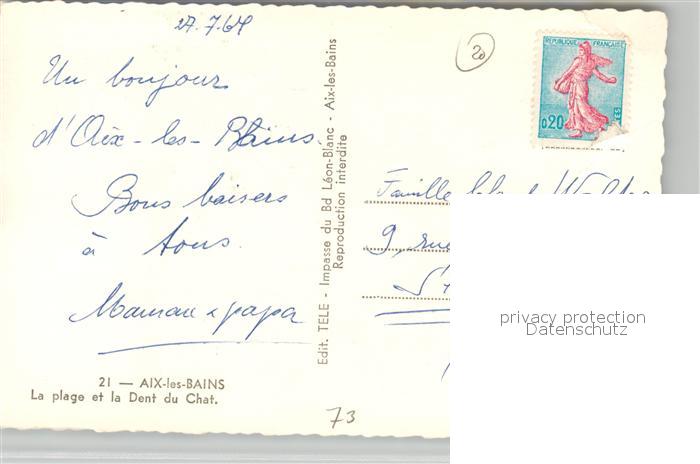 27.7.64
Un bonjour
d'Aix-les-Bains.
Bons baisers
à tous.
Maman & papa
21 — AIX-les-BAINS
La plage et la Dent du Chat.
Edit. TELE - Impasse du Bd Léon-Blanc - Aix-les-Bains
Reproduction interdite
73
20
REPUBLIQUE FRANÇAISE
0,20
Famille
9, rue
privacy protection
Datenschutz